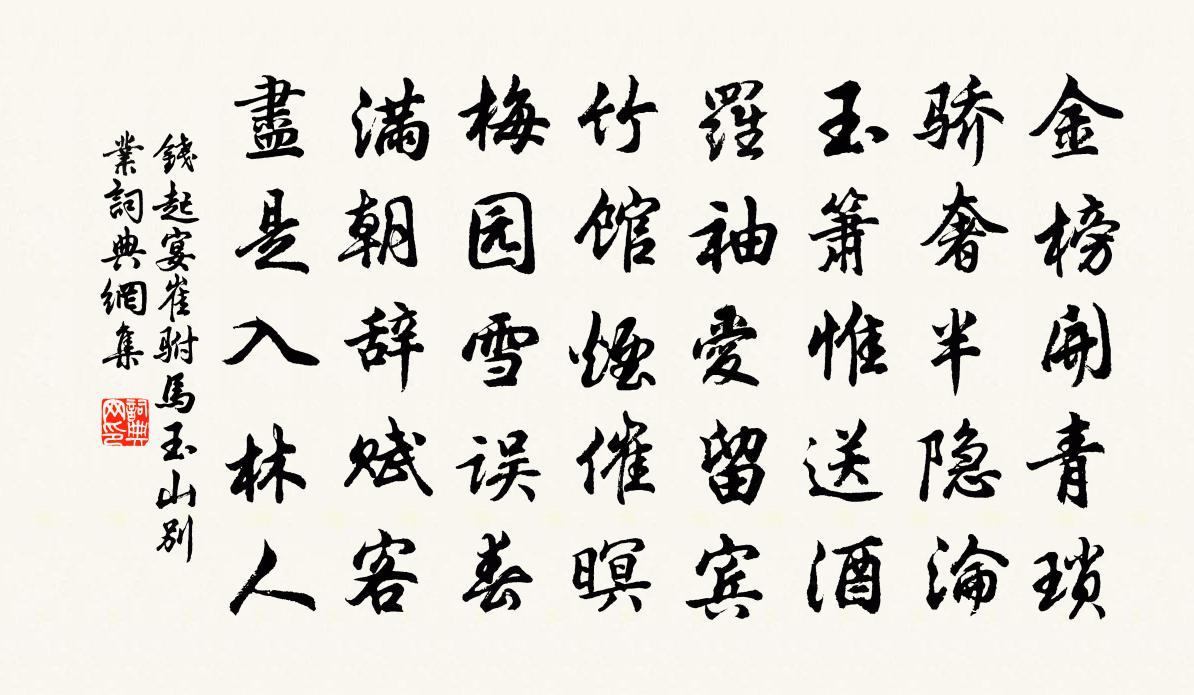 金榜開青瑣
骄奢半隐淪
玉簫惟送酒
羅袖愛留宾
竹馆煙催暝
梅园雪误春
满朝辞赋客
盡是入林人
錢起宴崔駙馬玉山别
業詞典網集
詞典網印